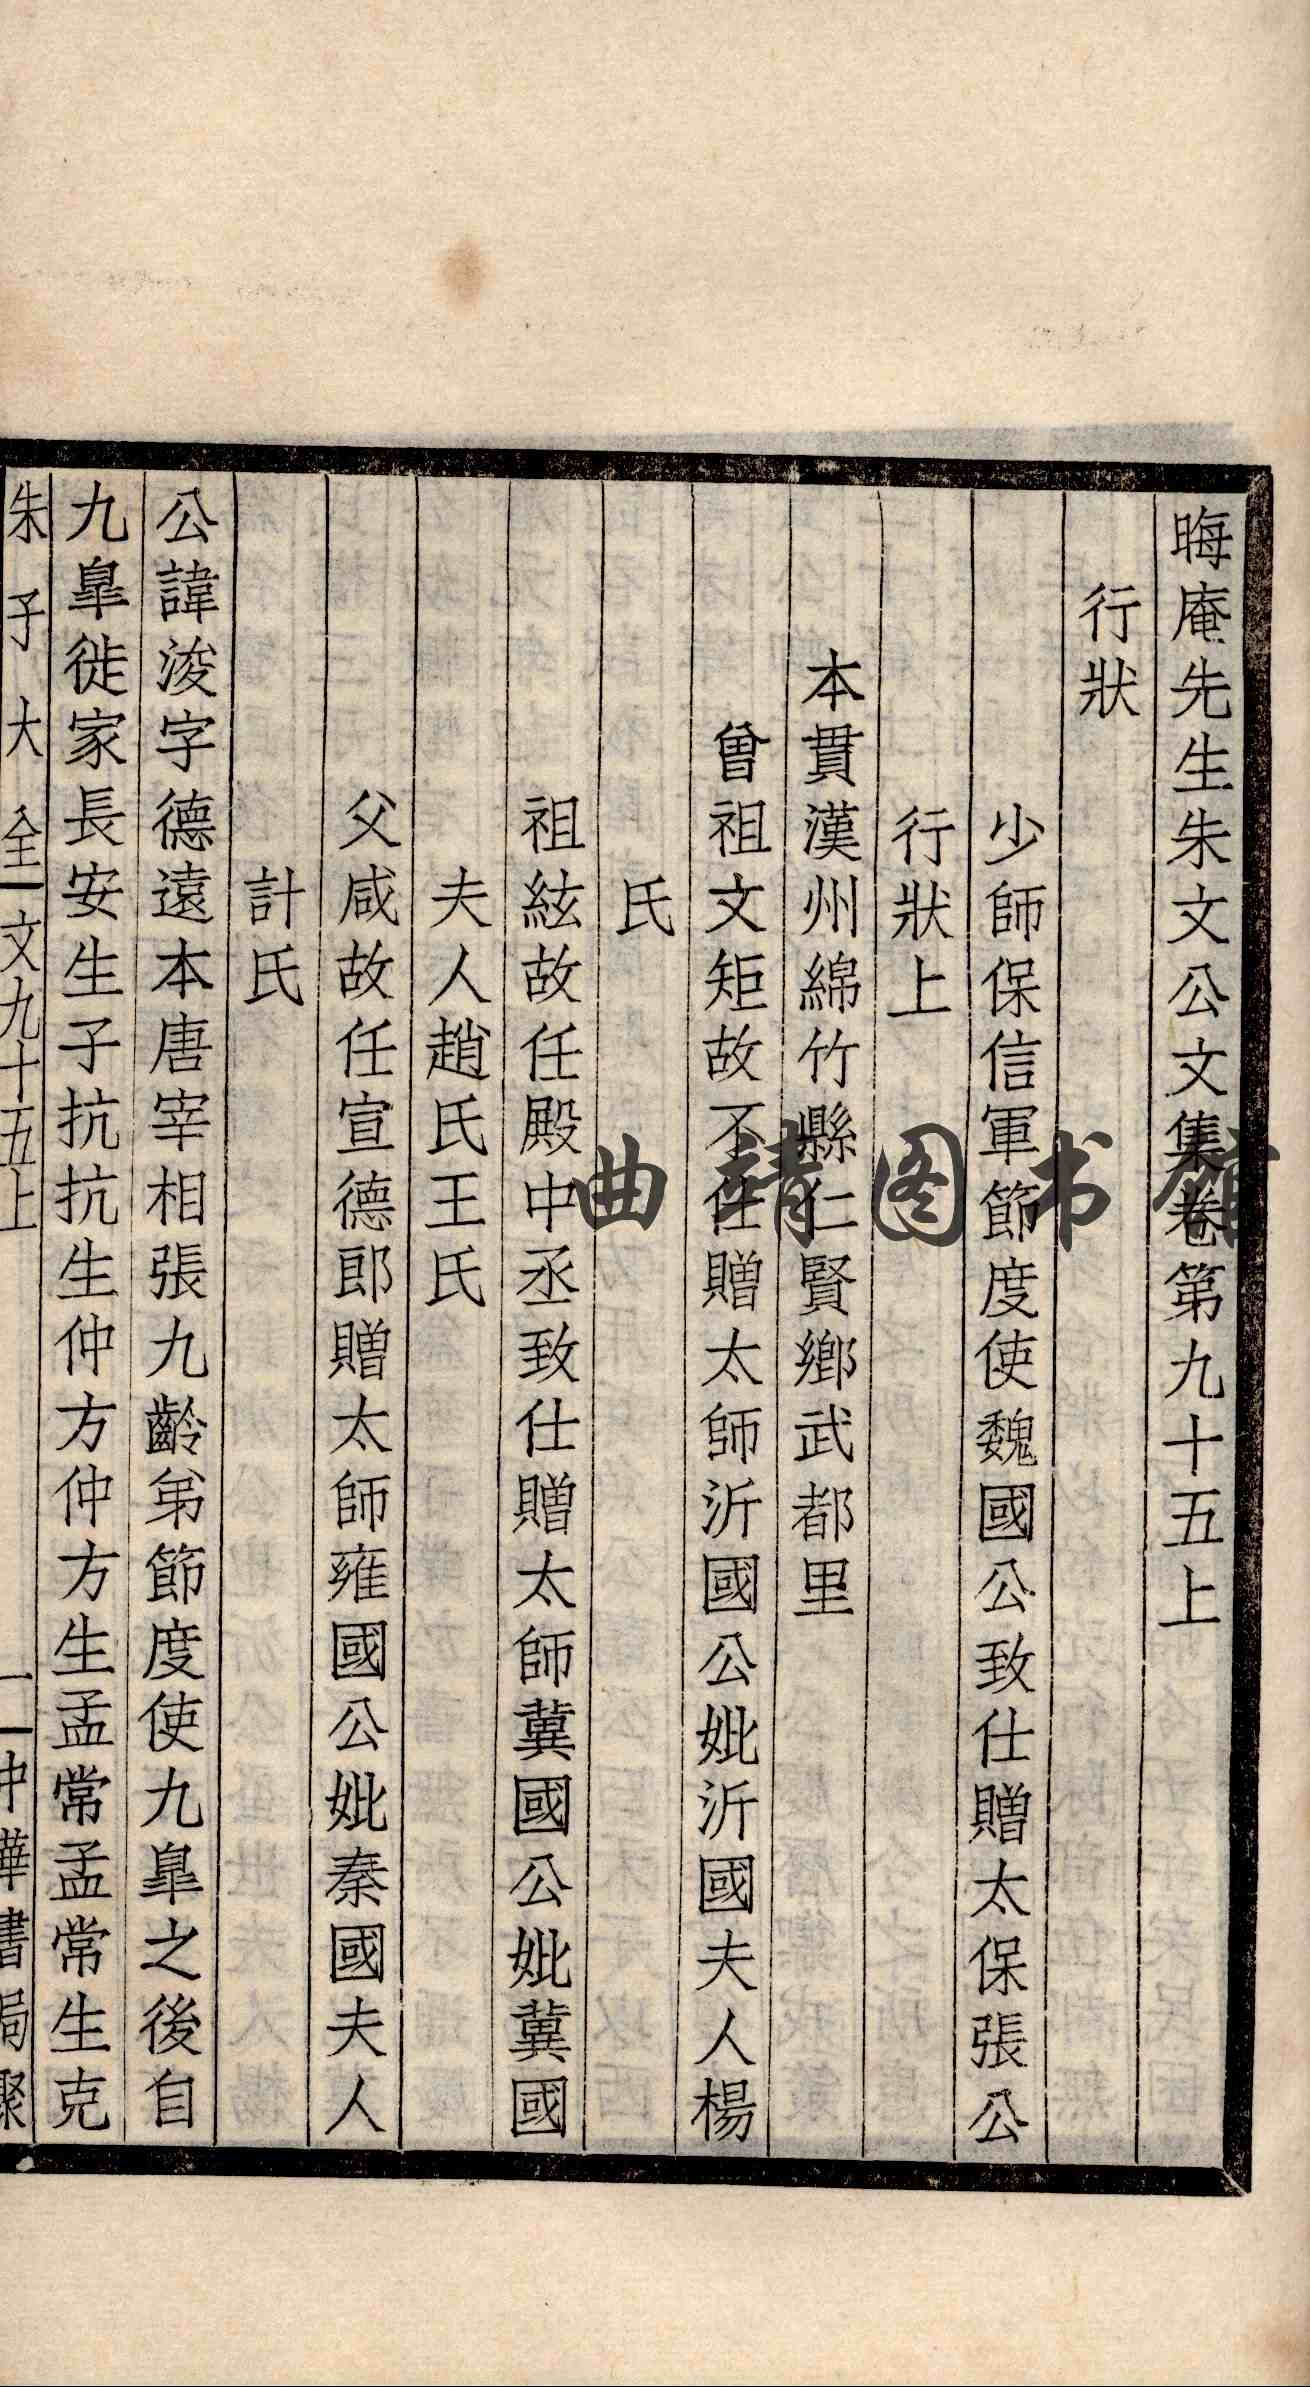 晦庵先生朱文公文集卷第九十五上
行狀
少師保信軍節度使魏國公致仕贈太保張公
行狀上
本貫漢州綿竹縣仁賢鄉武都里
曾祖文矩故不仕贈太師沂國公妣沂國夫人楊
氏
祖紘故任殿中丞致仕贈太師冀國公妣冀國
夫人趙氏王氏
父咸故任宣德郎贈太師雍國公妣秦國夫人
計氏
公諱浚字德遠本唐宰相張九齡弟節度使九皐之後自
九皐徙家長安生子抗抗生仲方仲方生孟常孟常生克
朱子大全 文九十五上 一 中華書局聚
曲靖图书馆